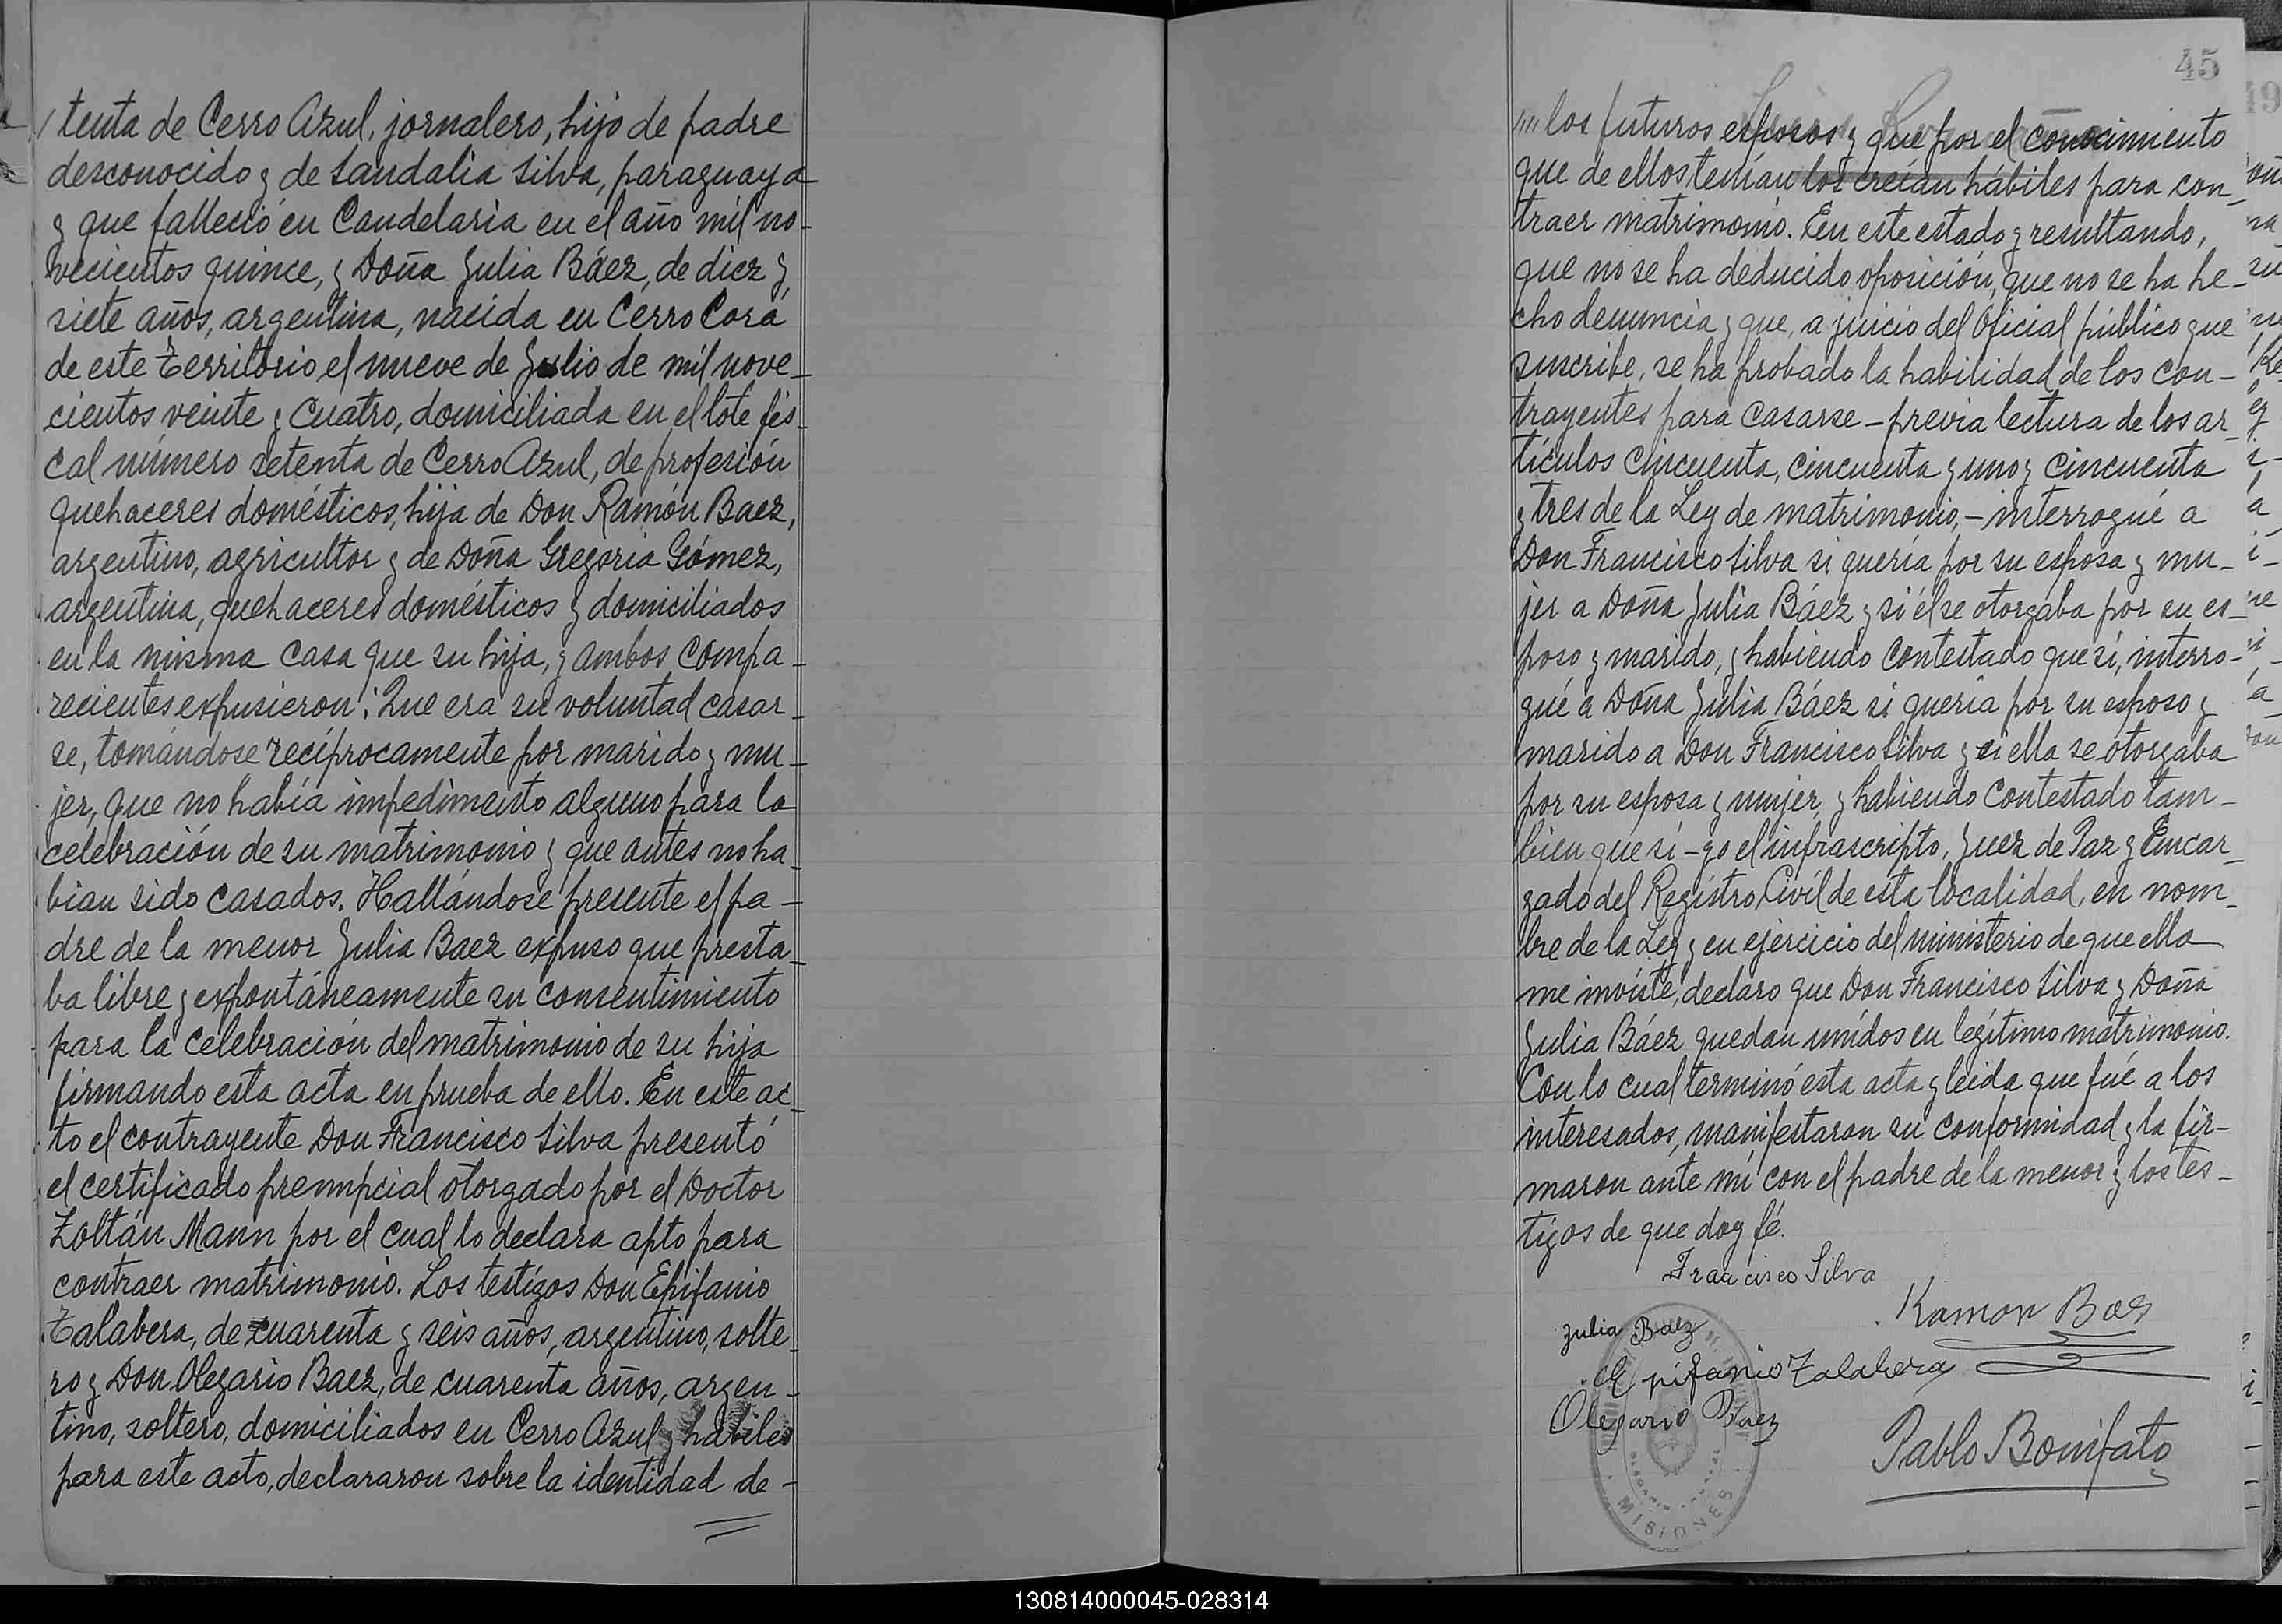 / tenta de Cerro Azul, jornalero, hijo de padre
desconocido y de Sandalia Silva, paraguaya
y que falleció en Candelaria en el año mil no-
vecientos quince, y Doña Julia Báez, de diez y
siete años, argentina, nacida en Cerro Corá
de este Territorio el nueve de Julio de mil nove-
cientos veinte y cuatro, domiciliada en el lote fis-
cal número setenta de Cerro Azul, de profesión
quehaceres domésticos, hija de Don Ramón Baez,
argentino, agricultor y de Doña Gregoria Gómez,
argentina, quehaceres domésticos y domiciliados
en la misma casa que su hija, y ambos compa-
recientes expusieron: Que era su voluntad casar-
se, tomándose recíprocamente por marido y mu-
jer, que no había impedimento alguno para la
celebración de su matrimonio y que antes no ha-
bian sido casados. Hallándose presente el pa-
dre de la menor Julia Baez expuso que presta-
ba libre y expontáneamente su consentimiento
para la celebración del matrimonio de su hija
firmando esta acta en prueba de ello. En este ac-
to el contrayente Don Francisco Silva presentó
el certificado prenupcial otorgado por el Doctor
Zoltán Mann por el cual lo declara apto para
contraer matrimonio. Los testigos Don Epifanio
Talabera, de cuarenta y seis años, argentino, solte-
ro y Don Olegario Baez, de cuarenta años, argen-
tino, soltero, domiciliados en Cerro Azul y hábiles
para este acto, declararon sobre la identidad de-
45
//// los futuros esposos y que por el conocimiento
que de ellos tenían los creían hábiles para con-
traer matrimonio. En este estado y resultando,
que no se ha deducido oposición, que no se ha he-
cho denuncia y que, a juicio del Oficial público que
suscribe, se ha probado la habilidad de los con-
trayentes para casarse - previa lectura de los ar-
tículos cincuenta, cincuenta y uno y cincuenta
y tres de la Ley de matrimonio, - interrogué a
Don Francisco Silva si quería por su esposa y mu-
jer a Doña Julia Báez y si él se otorgaba por su es-
poso y marido, y habiendo contestado que sí, interro-
gué a Doña Julia Báez si quería por su esposo y
marido a Don Francisco Silva y si ella se otorgaba
por su esposa y mujer, y habiendo contestado tam-
bien que si - yo el infrascripto, Juez de Paz y Encar-
gado del Registro Civil de esta localidad, en nom-
bre de la Ley y en ejercicio del ministerio de que ella
me inviste, declaro que Don Francisco Silva y Doña
Julia Báez quedan unidos en legítimo matrimonio.
Con lo cual terminó esta acta y leida que fué a los
interesados, manifestaron su conformidad y la fir-
maron ante mí con el padre de la menor y los tes-
tigos de que doy fé.
Francisco Silva
Ramon Baes
Julia Baez
Epifanio Talabera
Olegario Baez
Pablo Bonifato
MISIONES
130814000045-028314